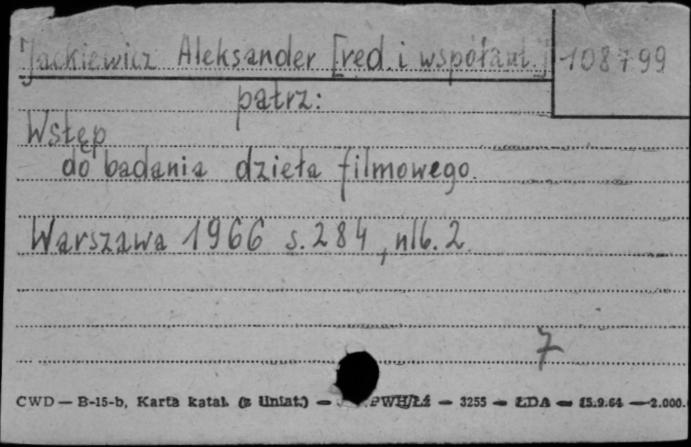 Jackiewicz Aleksander [red. i współaut.] 108799
patrz:
Wstęp
do badania dzieła filmowego.
Warszawa 1966 s. 284, nlb. 2
7
CWD — B-15-b, Karta katal. (z Uniat.) — PWH/Łż — 3255 — ŁDA — 15.9.64 — 2.000.